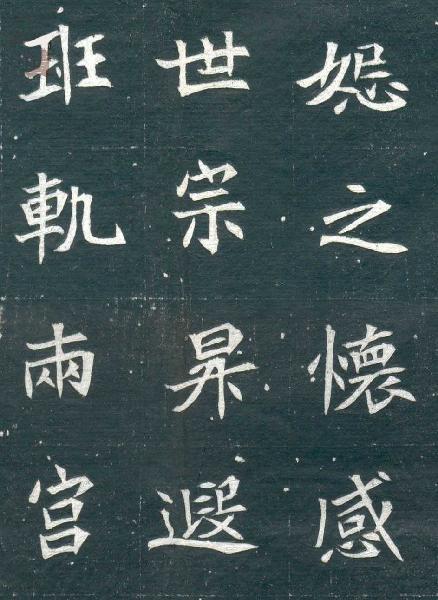 恕之懷感
世宗昇遐
班軌兩宮